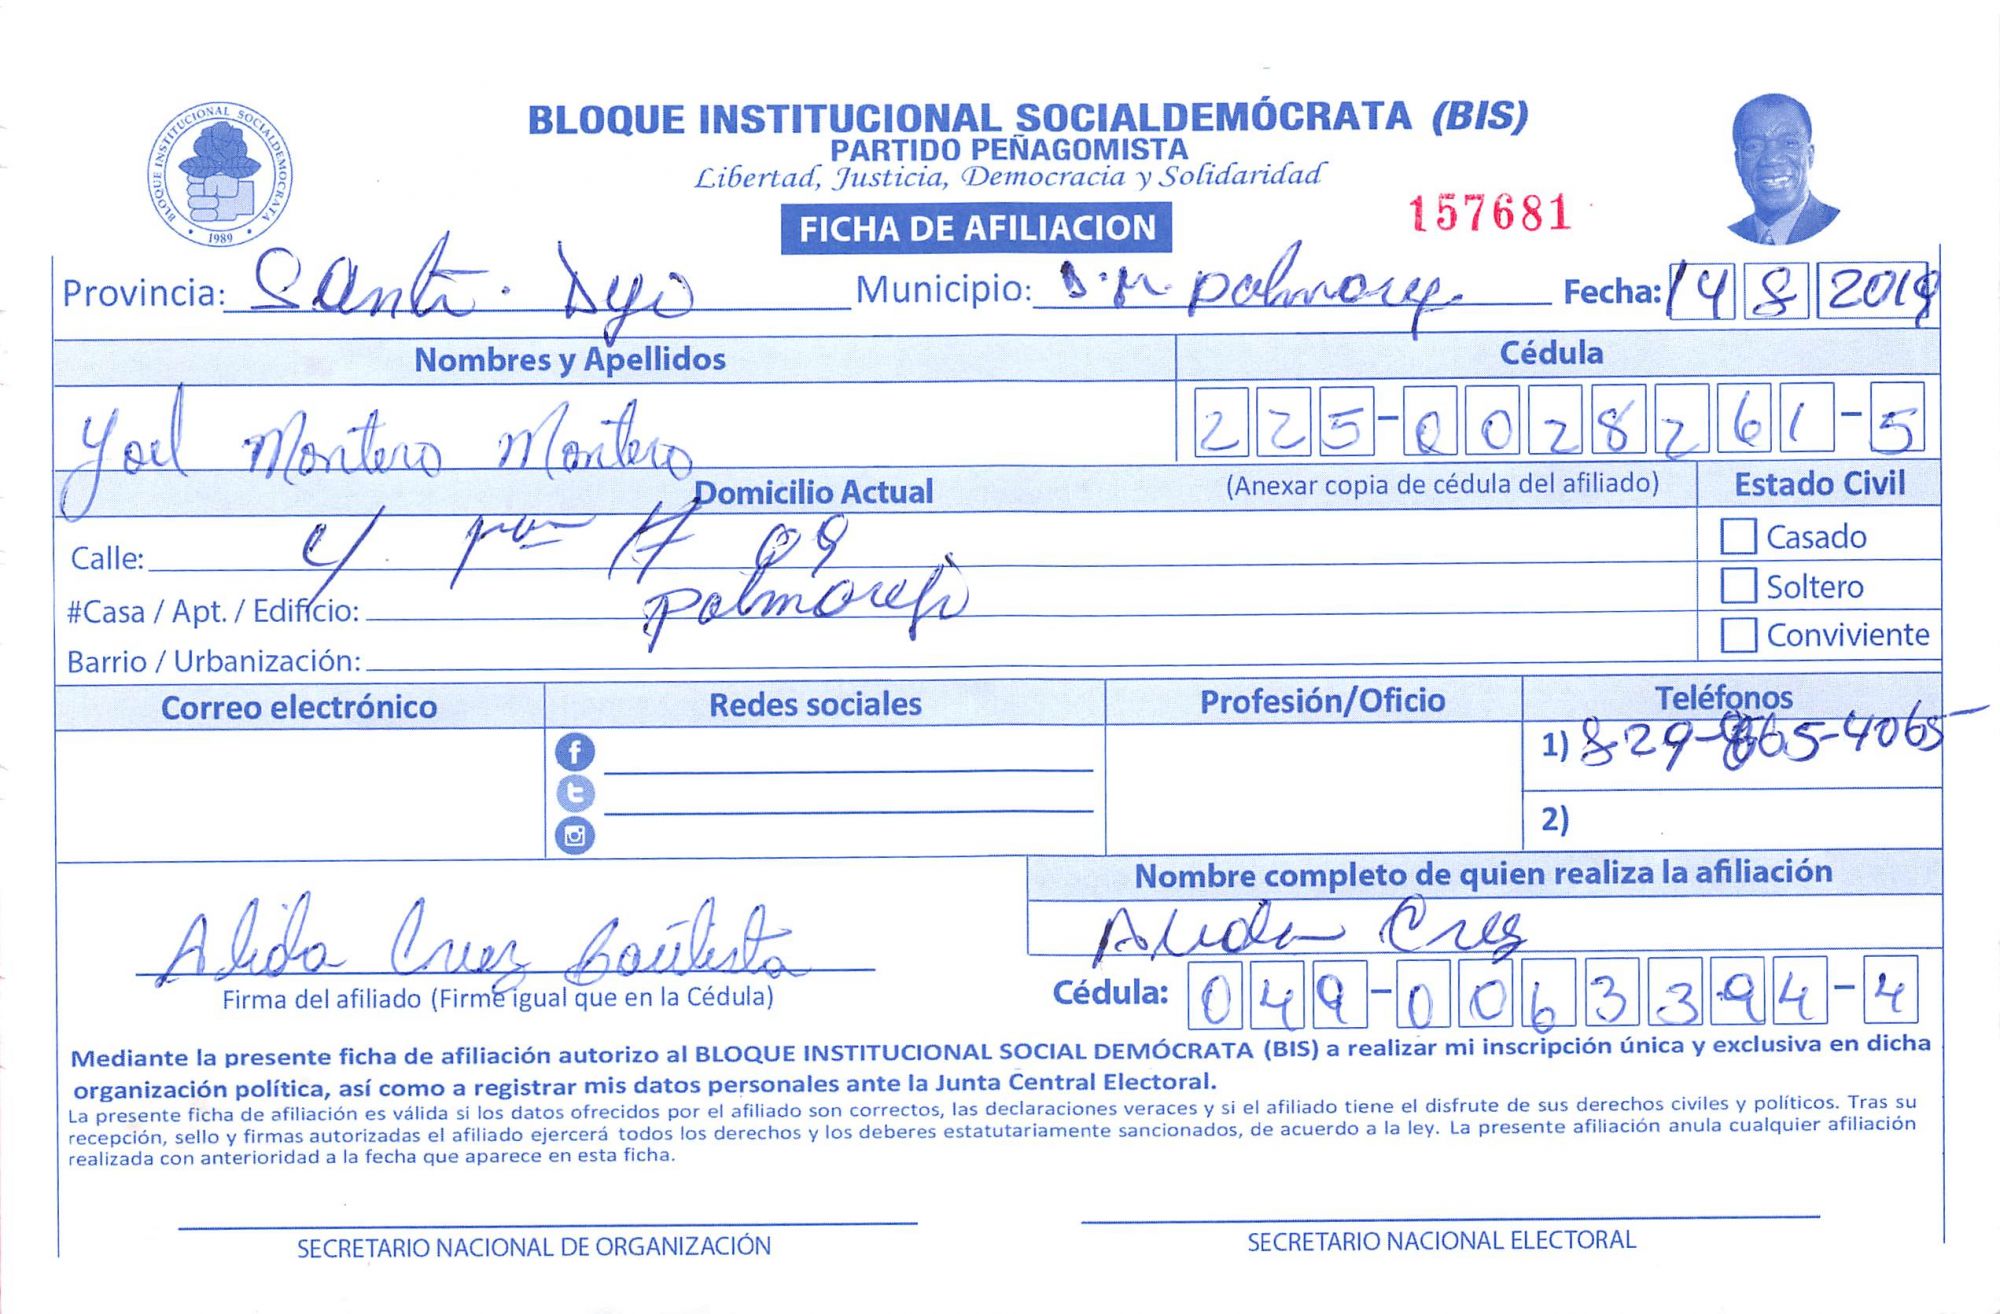 BLOQUE INSTITUCIONAL SOCIALDEMÓCRATA (BIS)
PARTIDO PEÑAGOMISTA
Libertad, Justicia, Democracia y Solidaridad
BLOQUE INSTITUCIONAL SOCIALDEMOCRATA
• 1989 •
157681
FICHA DE AFILIACION
Provincia: Municipio: D.M. Fecha: 14 8 2019
Nombres y Apellidos Cédula
Yoel Montero Montero 225-0028261-5
Domicilio Actual (Anexar copia de cédula del afiliado) Estado Civil
Calle: 09 Casado
#Casa / Apt. / Edificio: Soltero
Barrio / Urbanización: Conviviente
Correo electrónico Redes sociales Profesión/Oficio Teléfonos
1) 829-865-4065
2)
Nombre completo de quien realiza la afiliación
Alida Cruz Bautista Alida Cruz
Firma del afiliado (Firme igual que en la Cédula) Cédula: 049-0063394-4
Mediante la presente ficha de afiliación autorizo al BLOQUE INSTITUCIONAL SOCIAL DEMÓCRATA (BIS) a realizar mi inscripción única y exclusiva en dicha
organización política, así como a registrar mis datos personales ante la Junta Central Electoral.
La presente ficha de afiliación es válida si los datos ofrecidos por el afiliado son correctos, las declaraciones veraces y si el afiliado tiene el disfrute de sus derechos civiles y políticos. Tras su
recepción, sello y firmas autorizadas el afiliado ejercerá todos los derechos y los deberes estatutariamente sancionados, de acuerdo a la ley. La presente afiliación anula cualquier afiliación
realizada con anterioridad a la fecha que aparece en esta ficha.
SECRETARIO NACIONAL DE ORGANIZACIÓN SECRETARIO NACIONAL ELECTORAL